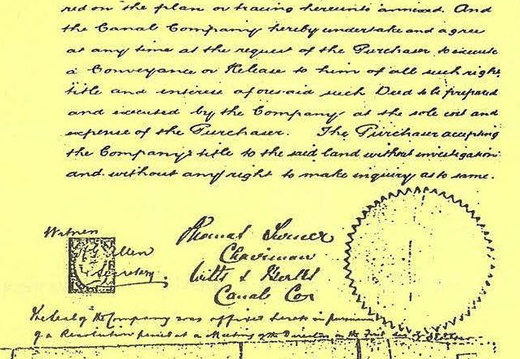 red on the plan or tracing hereunto annexed. And
the Canal Company hereby undertake and agree
at any time at the request of the Purchaser to execute
a Conveyance or Release to him of all such right
title and interest aforesaid such Deed to be prepared
and executed by the Company at the sole cost and
expense of the Purchaser. The Purchaser accepting
the Company's title to the said land without investigation
and without any right to make inquiry as to same.
Witness
Secretary
Chairman
Wilts & Berks
Canal Coy
The Seal of the Company was affixed hereto in pursuance
of a Resolution passed at a Meeting of the Directors on the